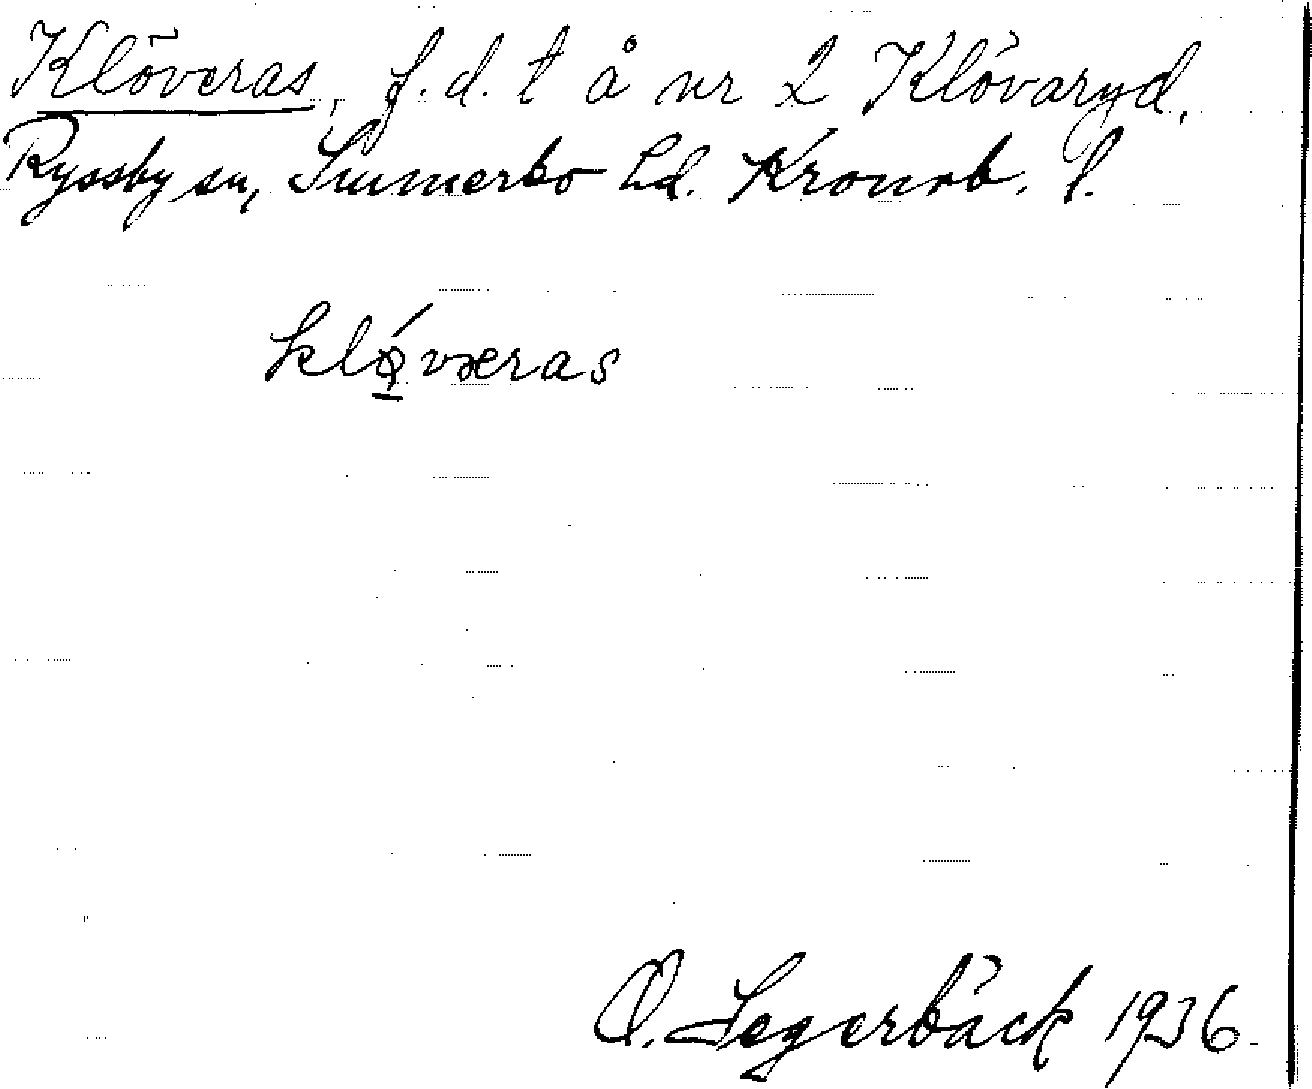 Klöveras, f.d. t å nr 2 Klövaryd,
Ryssby sn, Sunnerbo hd. Kronob. l.
klǿværas
O. Segerbäck 1936.